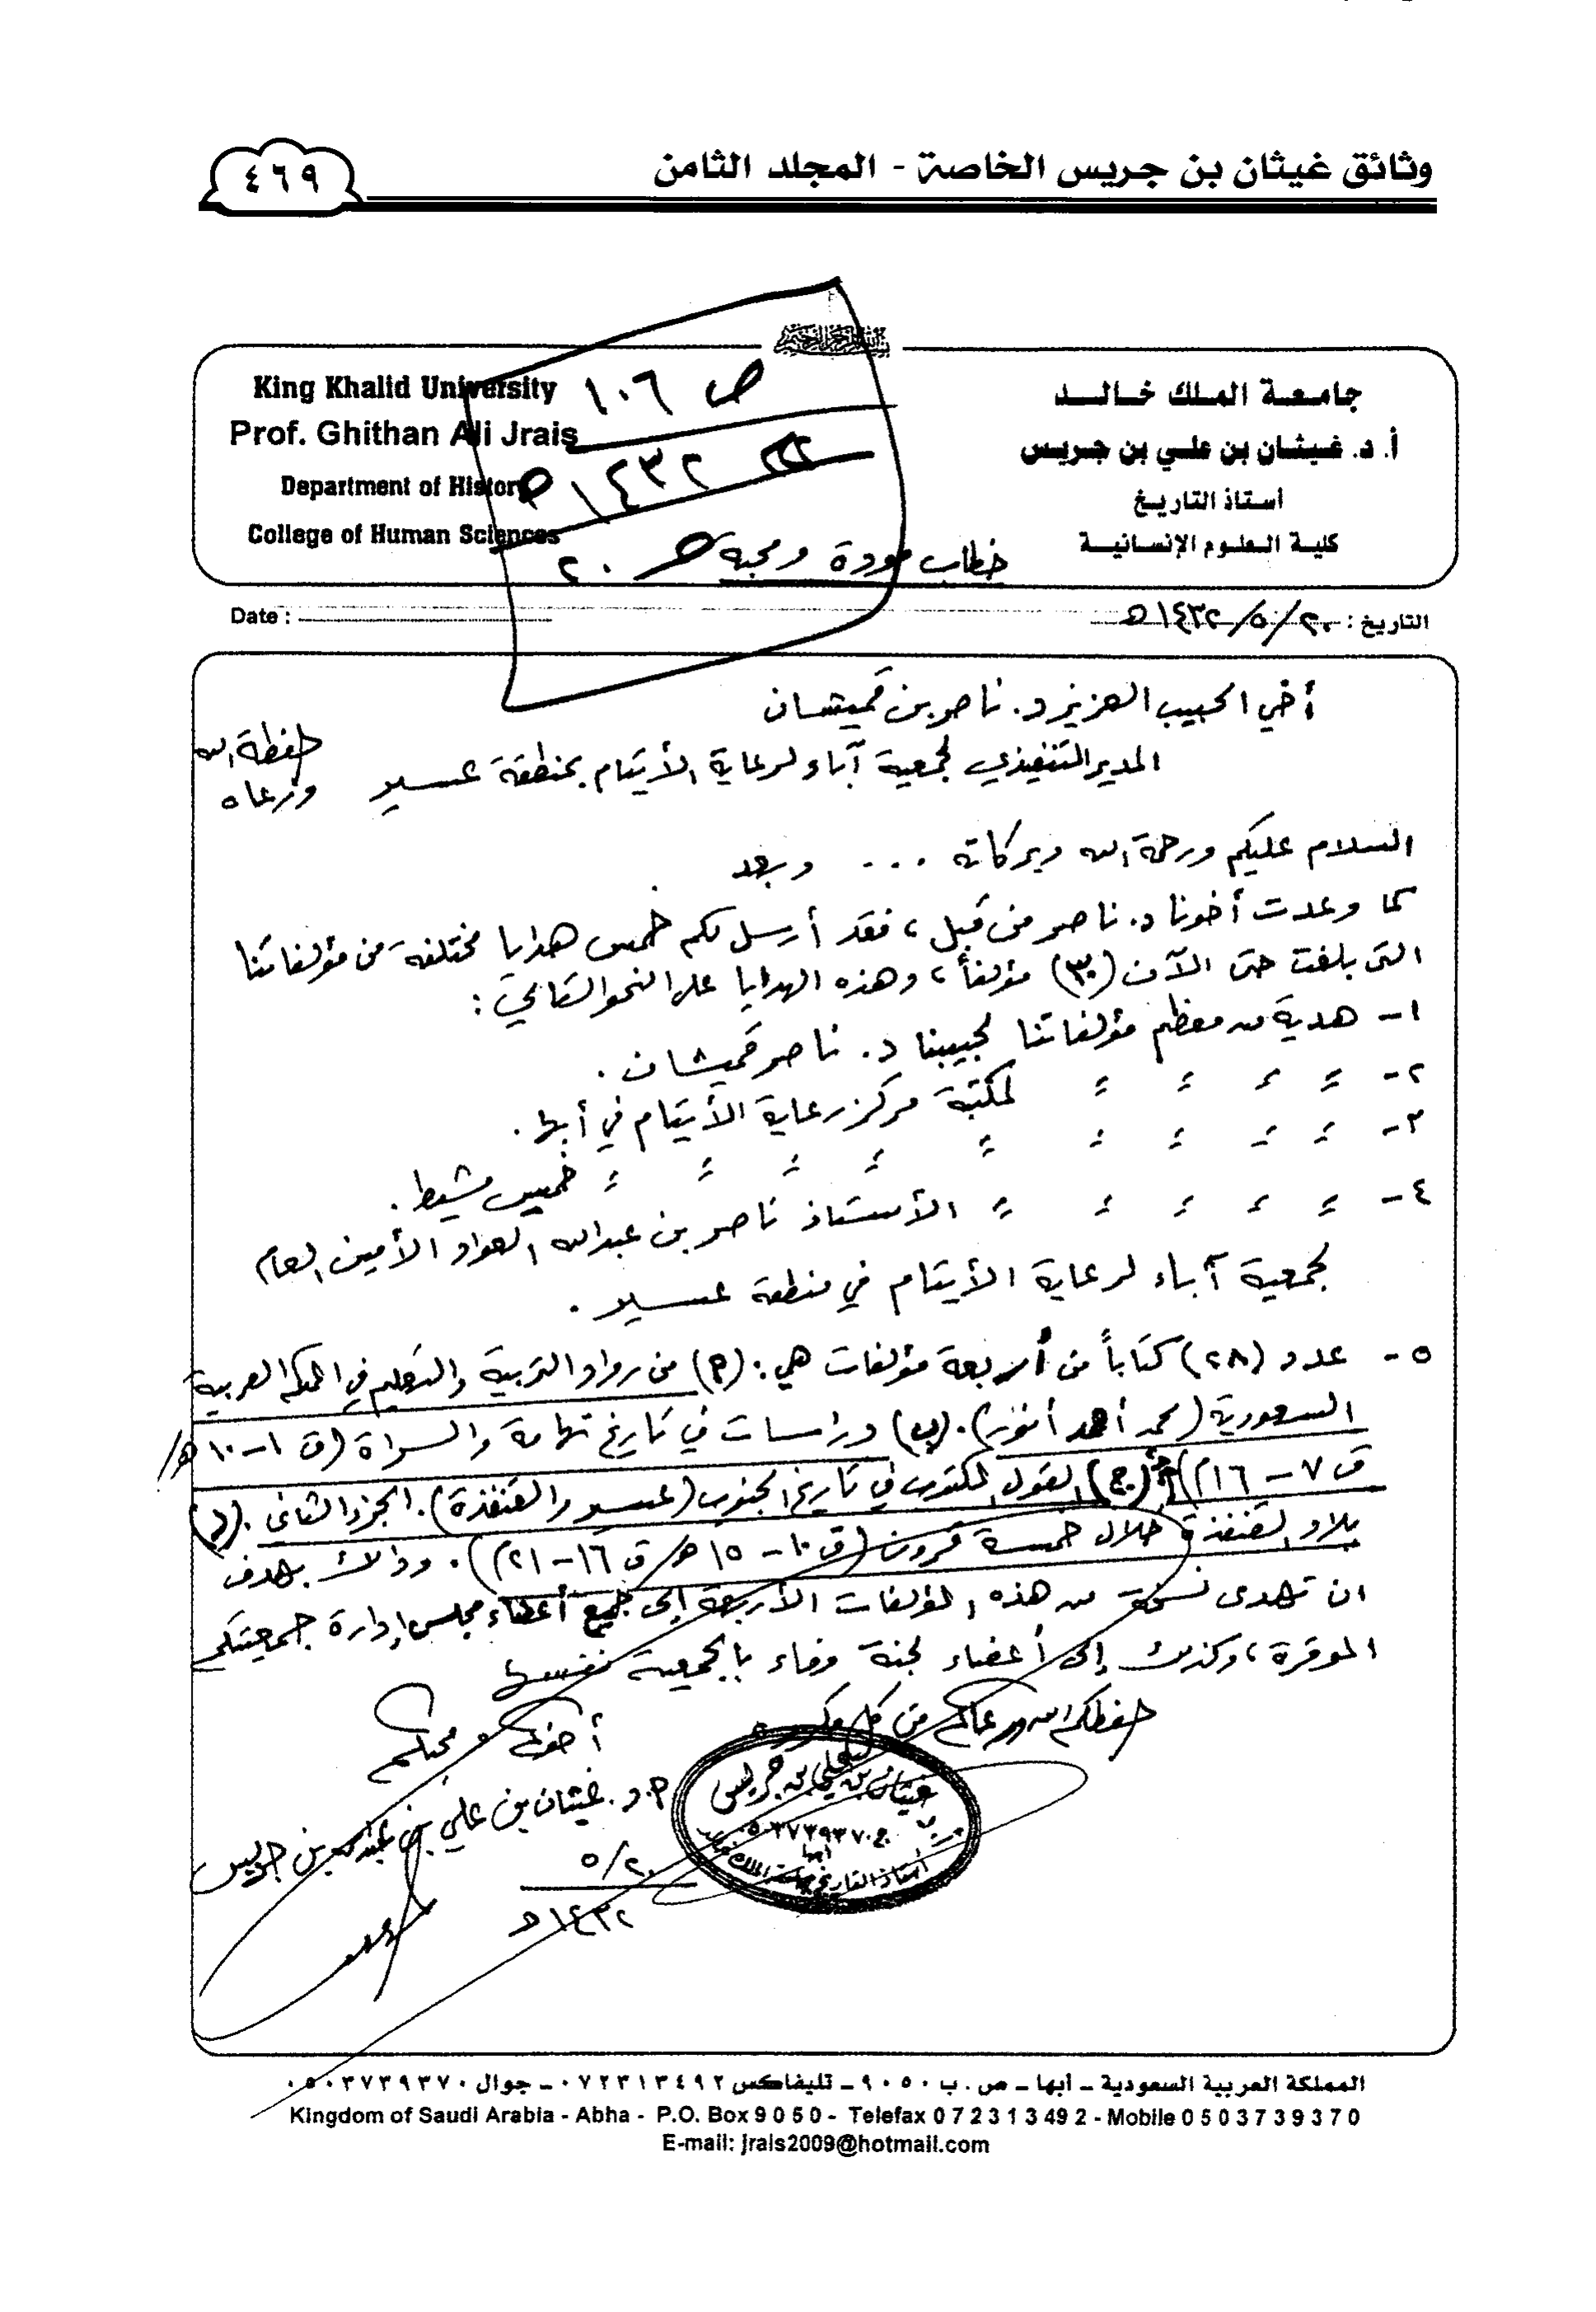 وثائق غيثان بن جريس الخاصة - المجلد الثامن
٤٦٩
جامعة الملك خالد
أ. د. غيثان بن علي بن جريس
أستاذ التاريخ
كلية العلوم الإنسانية
King Khalid University
Prof. Ghithan Ali Jrais
Department of History
College of Human Sciences
ص ١٠٦
١٤٣٢ هـ
خطاب مودة ومحبة
٢٠
التاريخ : ٢٠/٥/١٤٣٢هـ
Date :
أخي الحبيب العزيز د. ناصر بن قميشان
المدير التنفيذي لجمعية آباء لرعاية الأيتام بمنطقة عسير
حفظه الله
ورعاه
السلام عليكم ورحمة الله وبركاته ... وبعد
كما وعدت أخونا د. ناصر من قبل، فقد أرسل لكم خمس هدايا مختلفة من مؤلفاتنا
التي بلغت حتى الآن (٣٠) مؤلفاً، وهذه الهدايا على النحو التالي :
١- هدية من معظم مؤلفاتنا لحبيبنا د. ناصر قميشان .
٢- = = = = لمكتبة مركز رعاية الأيتام في أبها .
٣- = = = = = = = = = خميس مشيط .
٤- = = = = = الأستاذ ناصر بن عبدالله العواد الأمين العام
لجمعية آباء لرعاية الأيتام في منطقة عسير .
٥- عدد (٢٨) كتاباً من أربعة مؤلفات هي : (أ) من رواد التربية والتعليم في المملكة العربية
السعودية (محمد أحمد أنور) . (ب) دراسات في تاريخ تهامة والسراة (ق ١-١٠هـ/
ق ٧-١٦م) (ج) القول المكتوب في تاريخ الجنوب (عسير والقنفذة). الجزء الثاني . (د)
بلاد القنفذة خلال خمسة قرون (ق ١٠-١٥هـ/ ق ١٦-٢١م) . وذلك بهدف
ان تهدى نسخة من هذه المؤلفات الأربعة إلى جميع أعضاء مجلس إدارة جمعيتكم
الموقرة، وكذلك إلى أعضاء لجنة وفاء بالجمعية نفسها
حفظكم الله ورعاكم من كل مكروه
أخوكم ومحبكم
أ. د. غيثان بن علي بن عبدالله بن جريس
٢٠/٥
١٤٣٢هـ
غيثان بن علي بن جريس
ج ٠٥٠٣٧٣٩٣٧٠
أبها
أستاذ التاريخ بجامعة الملك خالد
المملكة العربية السعودية - أبها - ص . ب ٩٠٥٠ - تليفاكس ٠٧٢٣١٣٤٩٢ - جوال ٠٥٠٣٧٣٩٣٧٠
Kingdom of Saudi Arabia - Abha - P.O. Box 9 0 5 0 - Telefax 0 7 2 3 1 3 4 9 2 - Mobile 0 5 0 3 7 3 9 3 7 0
E-mail: jrais2009@hotmail.com